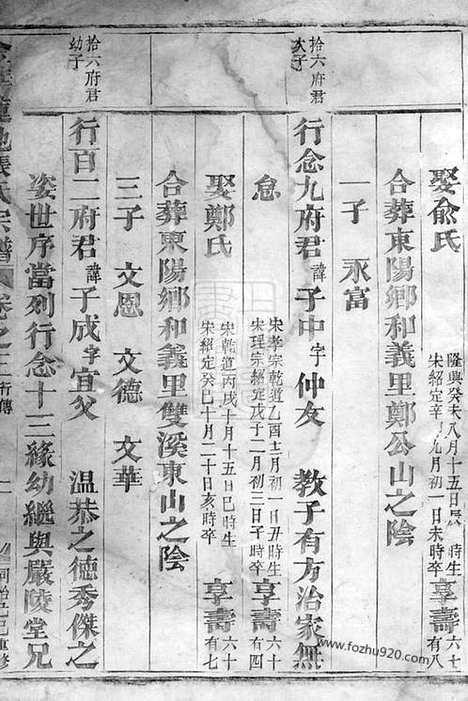 娶俞氏 隆興癸未八月十五日辰時生 宋紹定辛卯九月初一日未時卒 享壽六十有八
合葬東陽鄉和義里鄭公山之陰
一子 永富
拾六府君次子
行念九府君諱子中字仲友 教子有方治家無
怠 宋孝宗乾道乙酉十一月初一日丑時生 宋理宗紹定戊子二月初三日子時卒 享壽六十有四
娶鄭氏 宋乾道丙戌十月十五日巳時生 宋紹定癸巳十月二十日亥時卒 享壽六十有七
合葬東陽鄉和義里雙溪東山之陰
三子 文恩 文德 文華
拾六府君幼子
行百二府君諱子成字宜父 温恭之德秀傑之
姿世序當列行念十三緣幼繼與嚴陵堂兄
張氏宗譜 卷之二 行傳
www.fozhu920.com